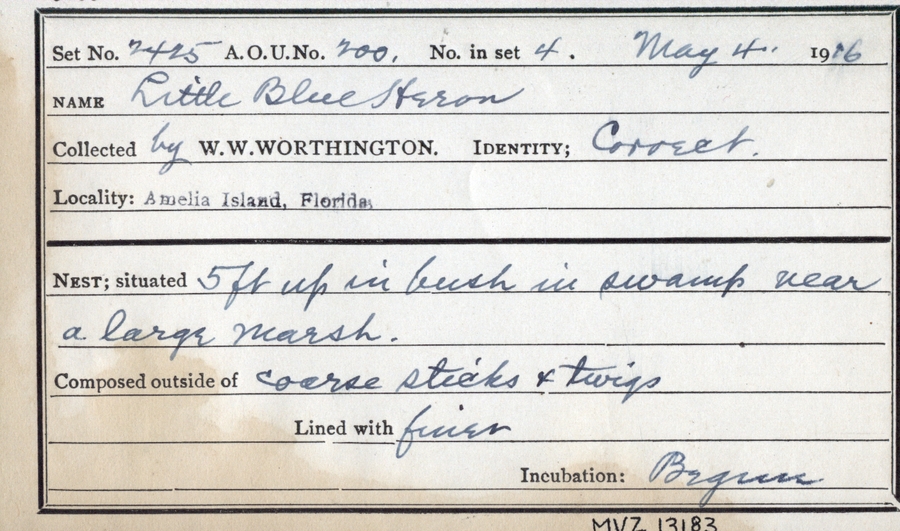 Set No. 2425 A.O.U.No. 200. No. in set 4. May 4. 1916
NAME Little Blue Heron
Collected by W.W.WORTHINGTON. IDENTITY; Correct.
Locality: Amelia Island, Florida.
NEST; situated 5 ft up in bush in swamp near
a large marsh.
Composed outside of coarse sticks & twigs
Lined with finer
Incubation: Begun
MVZ 13183